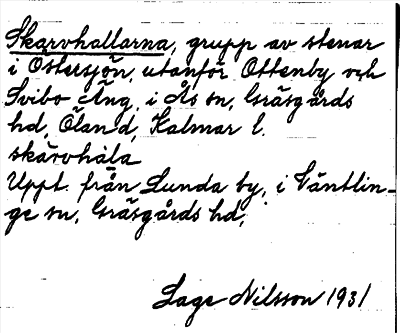 Skärvhallarna, grupp av stenar
i Östersjön, utanför Ottenby och
Svibo Äng, i Ås sn, Gräsgårds
hd, Öland, Kalmar l.
skärvhála
Uppt. från Lunda by, i Ventlin-
ge sn, Gräsgårds hd,
Lage Nilsson 1931